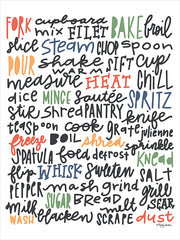 FORK cupboard
mix FILET BAKE broil
slice STEAM CHOP SPOON
POUR shake SIFT Cup
measure WARM CHILL
HEAT
dice MINCE sautée SPRITZ
stir shred PANTRY knife
teaspoon cook grate julienne
freeze BOIL shred sprinkle
SPATULA fold defrost KNEad
flip WHISK Sweeten SALT
PEPPER mash grind grill
milk SUGAR BREAD SEAR
WASH blacken melt SCRAPE dust